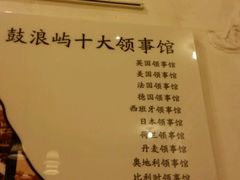 鼓浪屿十大领事馆
英国领事馆
美国领事馆
法国领事馆
德国领事馆
西班牙领事馆
日本领事馆
荷兰领事馆
丹麦领事馆
奥地利领事馆
比利时领事馆